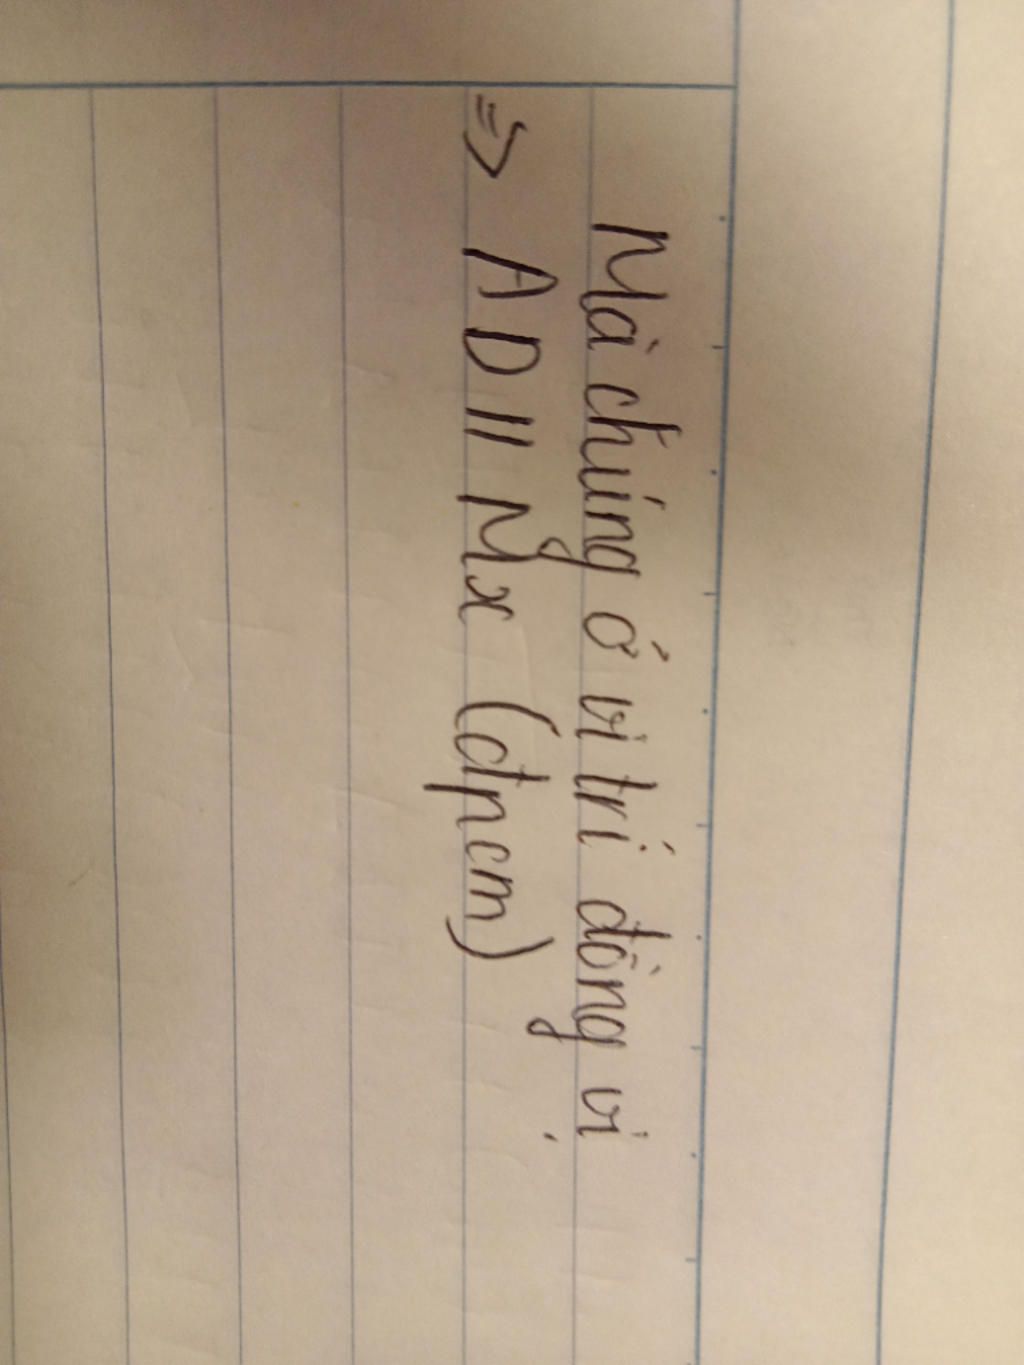 Mà chúng ở vị trí đồng vị
=> AD // Mx (đpcm)